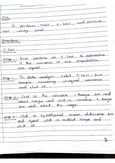 Aim
To perform mean, t-test, and
using excel.
Procedure
T test
Step 1 - First perform an F test to determine
if the variances of two populations
are equal.
Step 2 - In data analysis select T-test: two
sample assuming unequal variance
and click ok.
Step 3 - Click in the variable 1 Range box and
select range and click in variable 2 range
box and select the range.
Step 4 - Click in hypothesized mean difference box
and type 0 click in output range and
click ok.